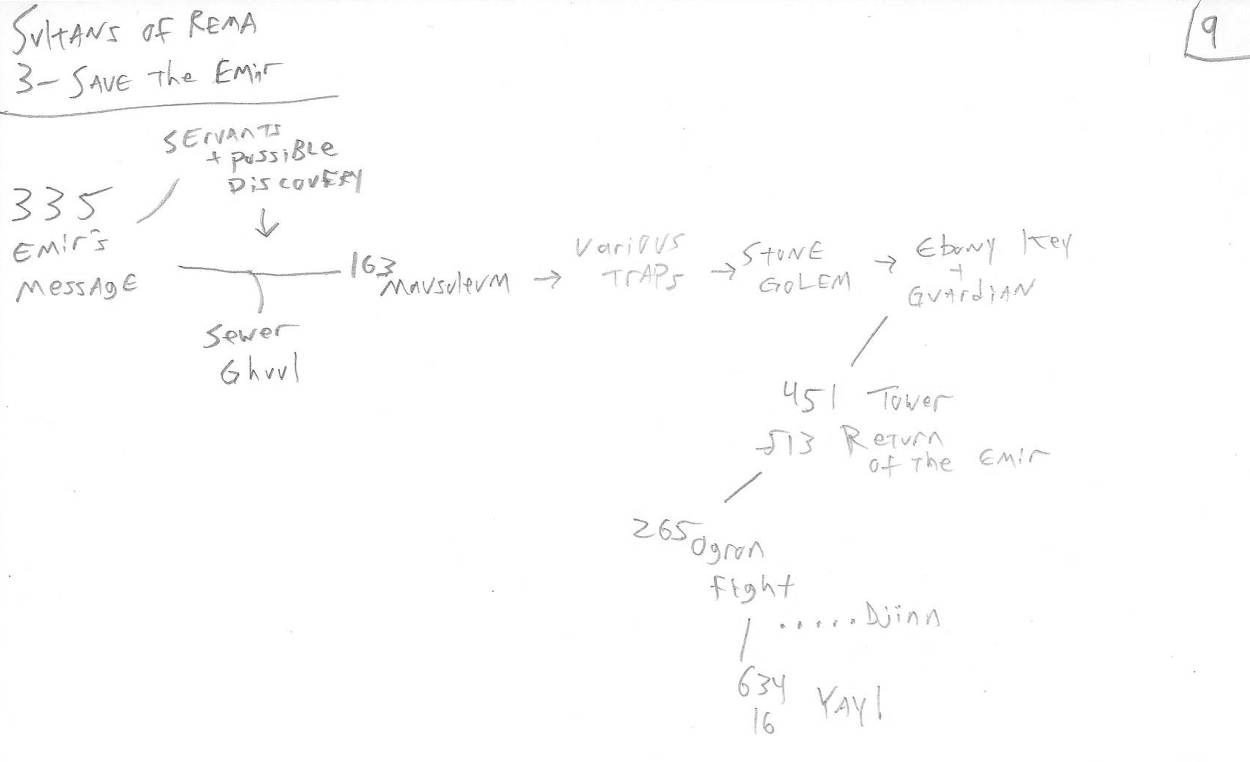 Sultans of Rema
9
3- Save the Emir
Servants
+ possible
Discovery
335
Emir's
Message
163 Mausuleum
→ Various
Traps
→ Stone
Golem
→ Ebony Key
+
Guardian
Sewer
Ghuul
451 Tower
513 Return
of the Emir
265 Ogron
Fight
..... Djinn
634
16
Yay!